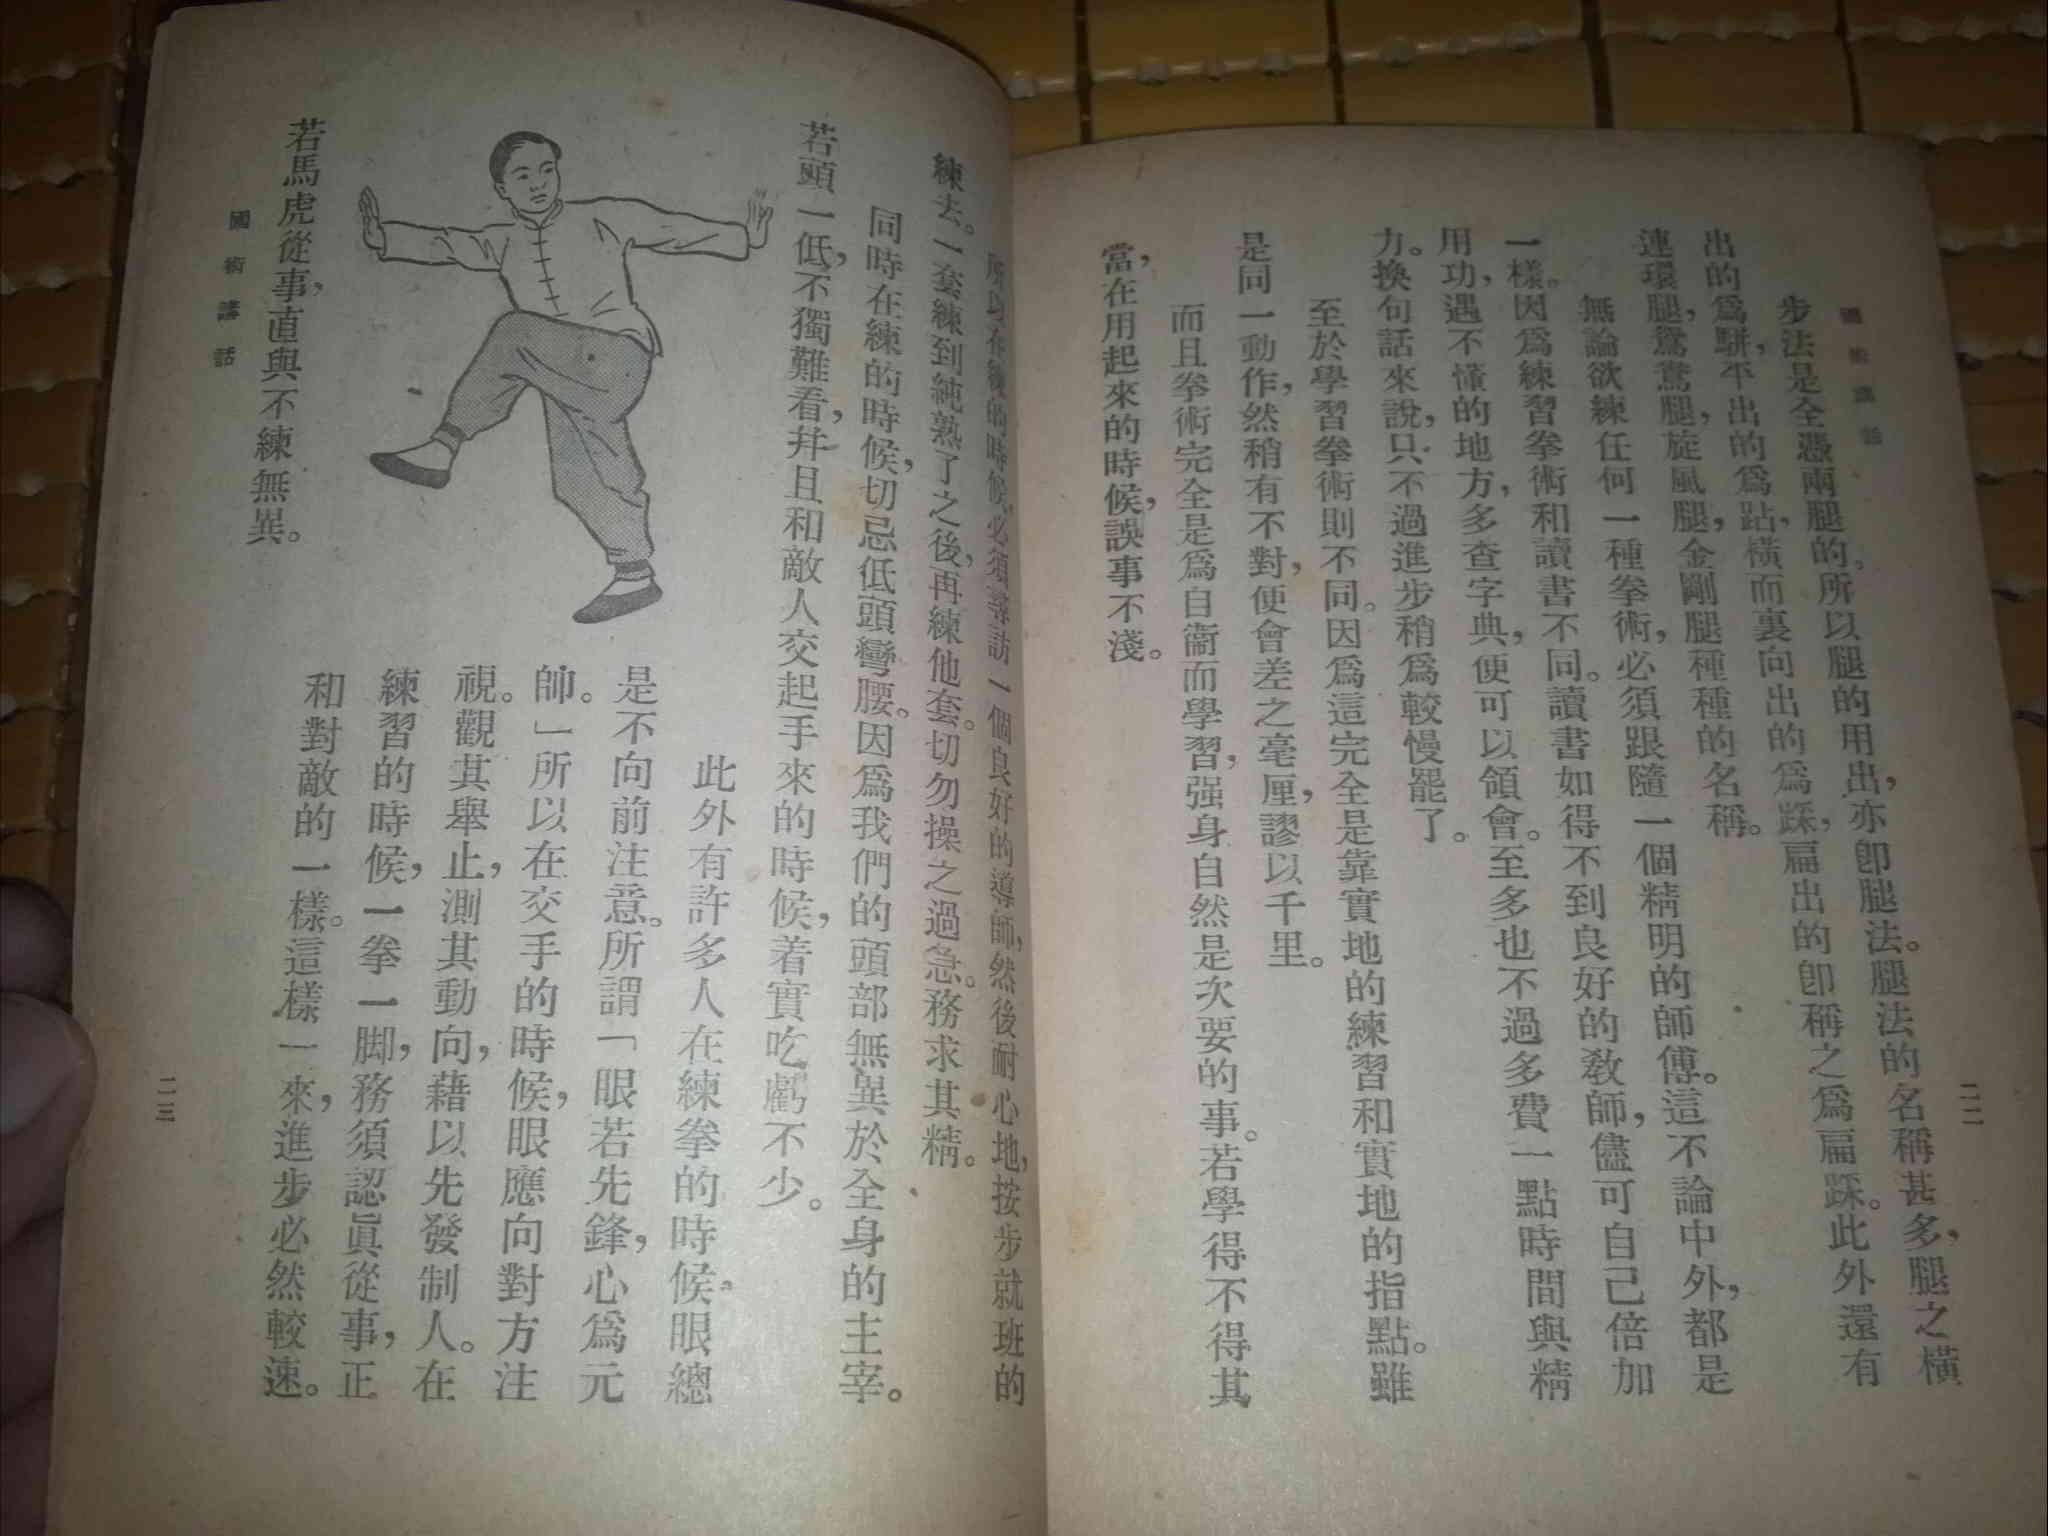 國術講話
二二
步法是全憑兩腿的。所以腿的用出，亦卽腿法。腿法的名稱甚多，腿之橫
出的爲駢，平出的爲跕，橫而裏向出的爲踩，扁出的卽稱之爲扁踩。此外還有
連環腿，鴛鴦腿，旋風腿，金剛腿種種的名稱。
無論欲練任何一種拳術，必須跟隨一個精明的師傅。這不論中外，都是
一樣。因爲練習拳術和讀書不同。讀書如得不到良好的敎師，儘可自己倍加
用功，遇不懂的地方，多查字典，便可以領會。至多也不過多費一點時間與精
力。換句話來說，只不過進步稍爲較慢罷了。
至於學習拳術則不同。因爲這完全是靠實地的練習和實地的指點。雖
是同一動作，然稍有不對，便會差之毫厘，謬以千里。
而且拳術完全是爲自衞而學習，强身自然是次要的事。若學得不得其
當，在用起來的時候，誤事不淺。
所以在練的時候，必須尋訪一個良好的導師，然後耐心地，按步就班的
練去。一套練到純熟了之後，再練他套。切勿操之過急。務求其精。
同時在練的時候，切忌低頭彎腰。因爲我們的頭部無異於全身的主宰。
若頭一低，不獨難看，幷且和敵人交起手來的時候，着實吃虧不少。
此外有許多人在練拳的時候，眼總
是不向前注意。所謂「眼若先鋒，心爲元
帥。」所以在交手的時候，眼應向對方注
視。觀其舉止，測其動向，藉以先發制人。在
練習的時候，一拳一脚，務須認眞從事，正
和對敵的一樣。這樣一來，進步必然較速。
若馬虎從事，直與不練無異。
國術講話
二三